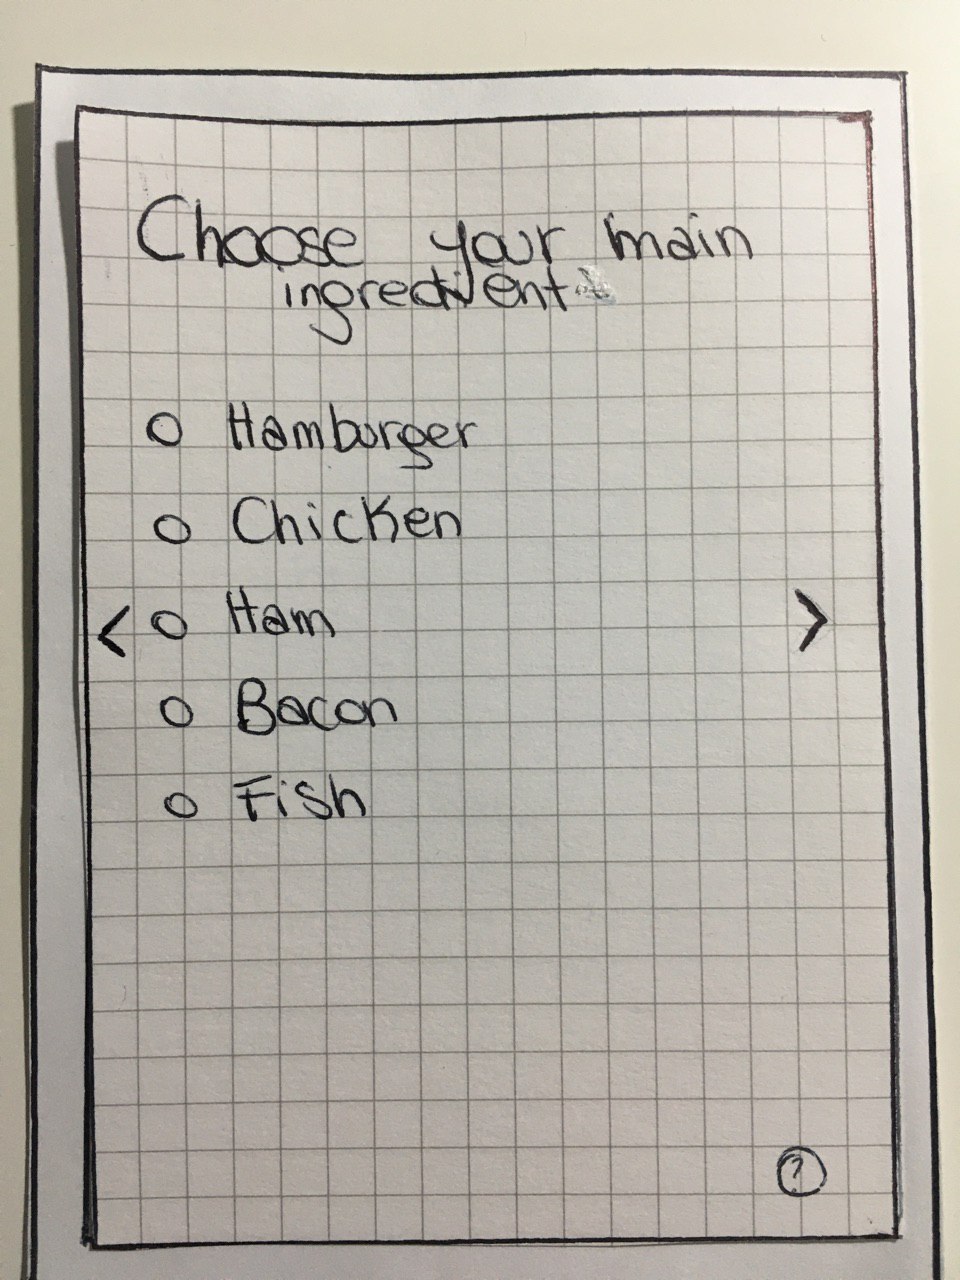 Choose your main
ingredient
Hamburger
Chicken
< Ham >
Bacon
Fish
?